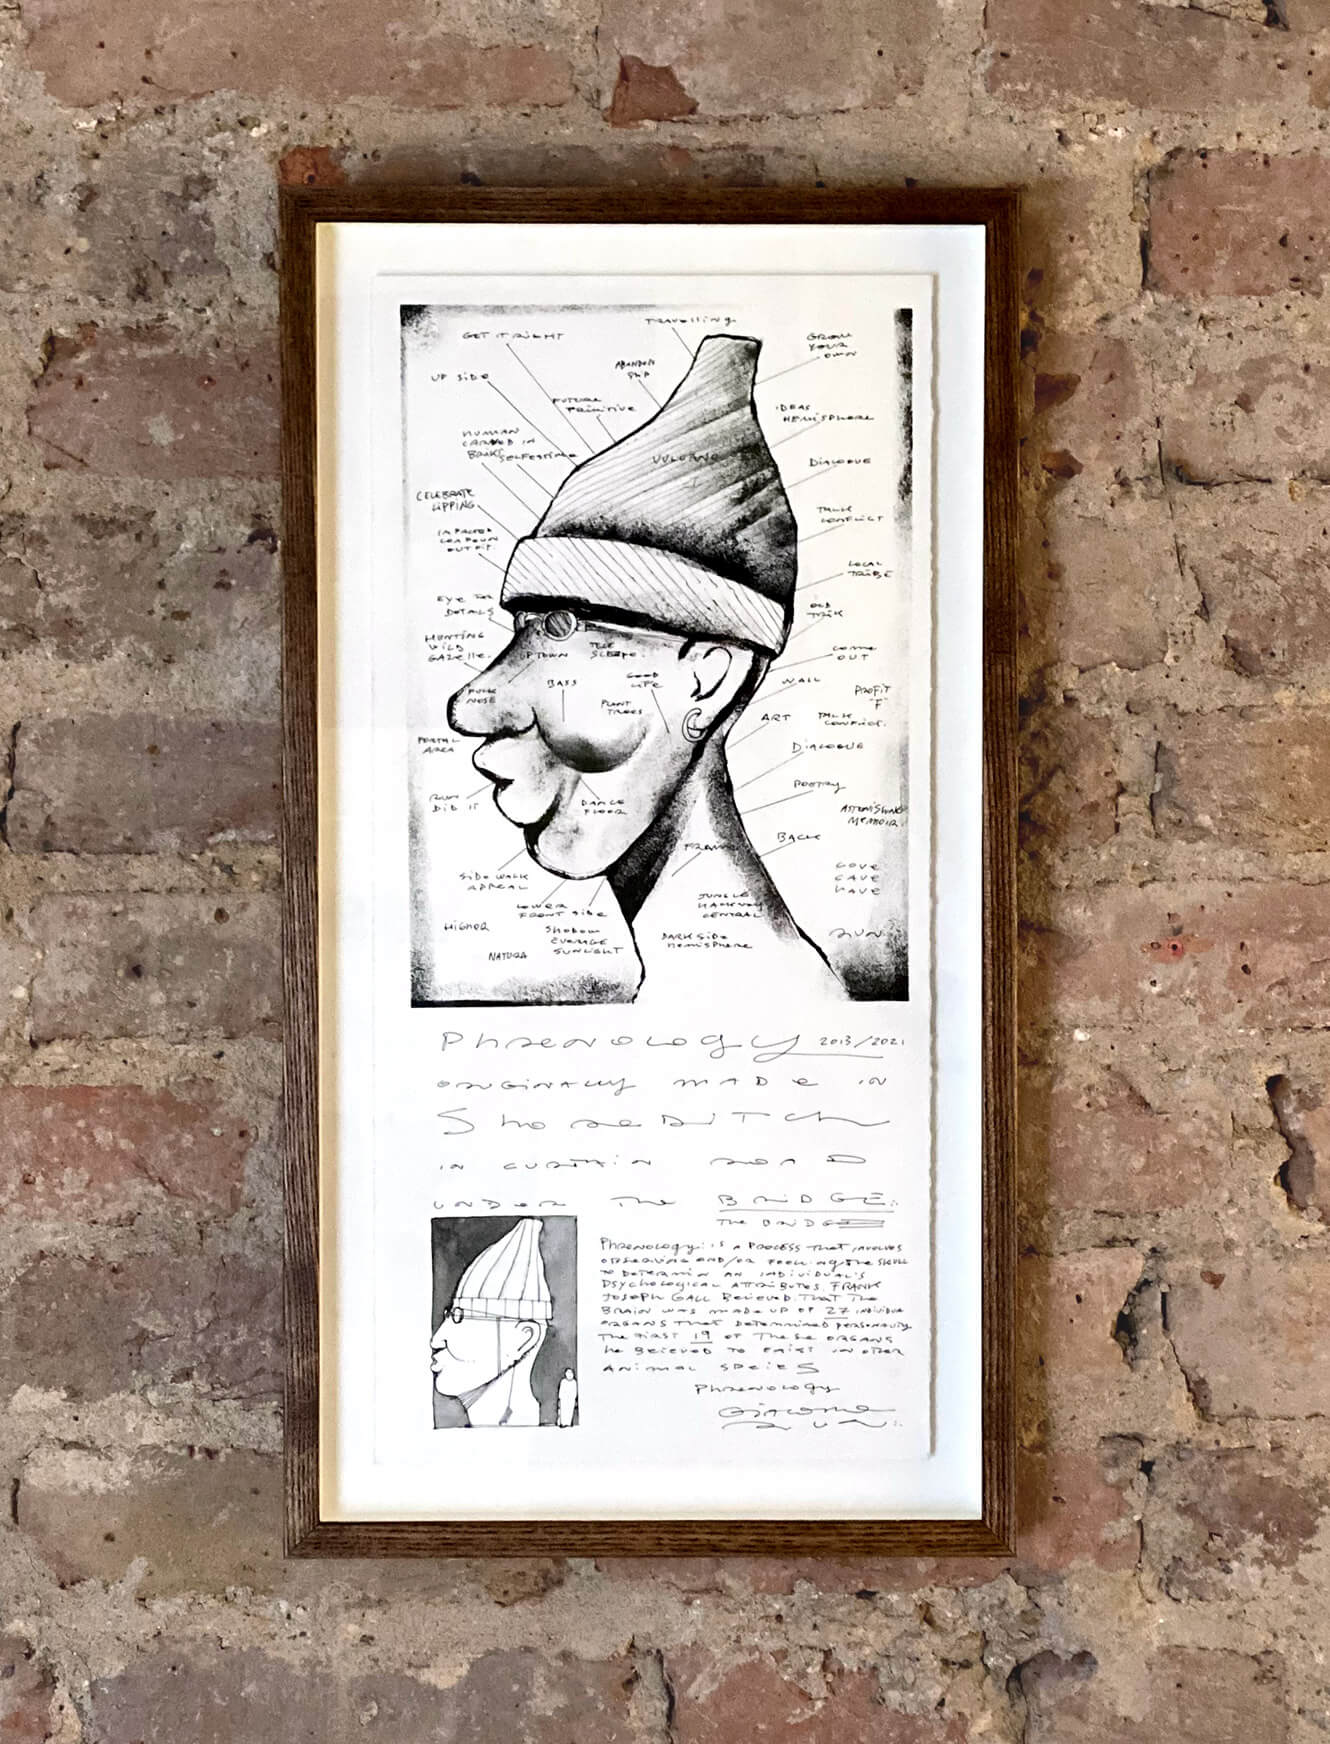 TRAVELLING
GET IT RIGHT
GROW
YOUR
OWN
UP SIDE
ABANDON
SHIP
FUTURE
PRIMITIVE
IDEAS
HEMISPHERE
HUMAN
CARVED IN
SELFESTIME
VULCANO
DIALOGUE
CELEBRATE
TALK
CONFLICT
OUTFIT.
LOCAL
TRIBE
EYE FOR
DETAILS
OLD
TRIK
HUNTING
WILD
GAZELLE.
UPTOWN
TELE
COME
OUT
FUNK
NOSE
BASS
GOOD
LIFE
WALL
PLANT
TREES
PROFIT
"F"
ART
TALK
CONFLICT.
AREA
DIALOGUE
RUN
DID IT
DANCE
FLOOR
POETRY
ASTONISHING
MEMOIR.
BACK
FRAME
SIDE WALK
APPEAL
LOVE
CAVE
HAVE
LOWER
FRONT SIDE
JUNGLE
HACKNEY
CENTRAL
HIGHER
SHADOW
SUNLIGHT
DARK SIDE
HEMISPHERE
RUN.
NATURA
Phrenology 2013/2021
ORIGINALLY MADE IN
SHOREDITCH
IN CURTAIN ROAD
UNDER THE BRIDGE.
THE
PHRENOLOGY: IS A PROCESS THAT INVOLVES
OBSERVING AND/OR FEELING THE SKULL
TO DETERMIN AN INDIVIDUAL'S
PSYCHOLOGICAL ATTRIBUTES. FRANK
JOSEPH GALL BELIEVED THAT THE
BRAIN WAS MADE UP OF 27 INDIVIDUAL
ORGANS THAT DETERMINED PERSONALITY
THE FIRST 19 OF THESE ORGANS
HE BELIEVED TO EXIST IN OTHER
ANIMAL SPECIES
PHRENOLOGY
GIACOMO
RUN.